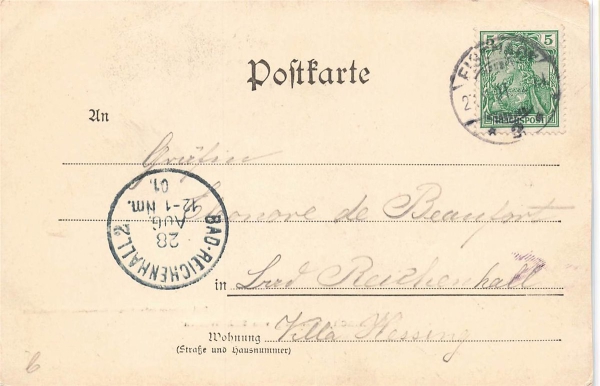 5 5
EISENACH
REICHSPOST
* 2
Postkarte
An
Gräfin
Eleonore de Beaufort
in Bad Reichenhall
Wohnung Villa Wessing
(Straße und Hausnummer)
BAD-REICHENHALL 2
28
AUG.
12-1 Nm.
01.
6